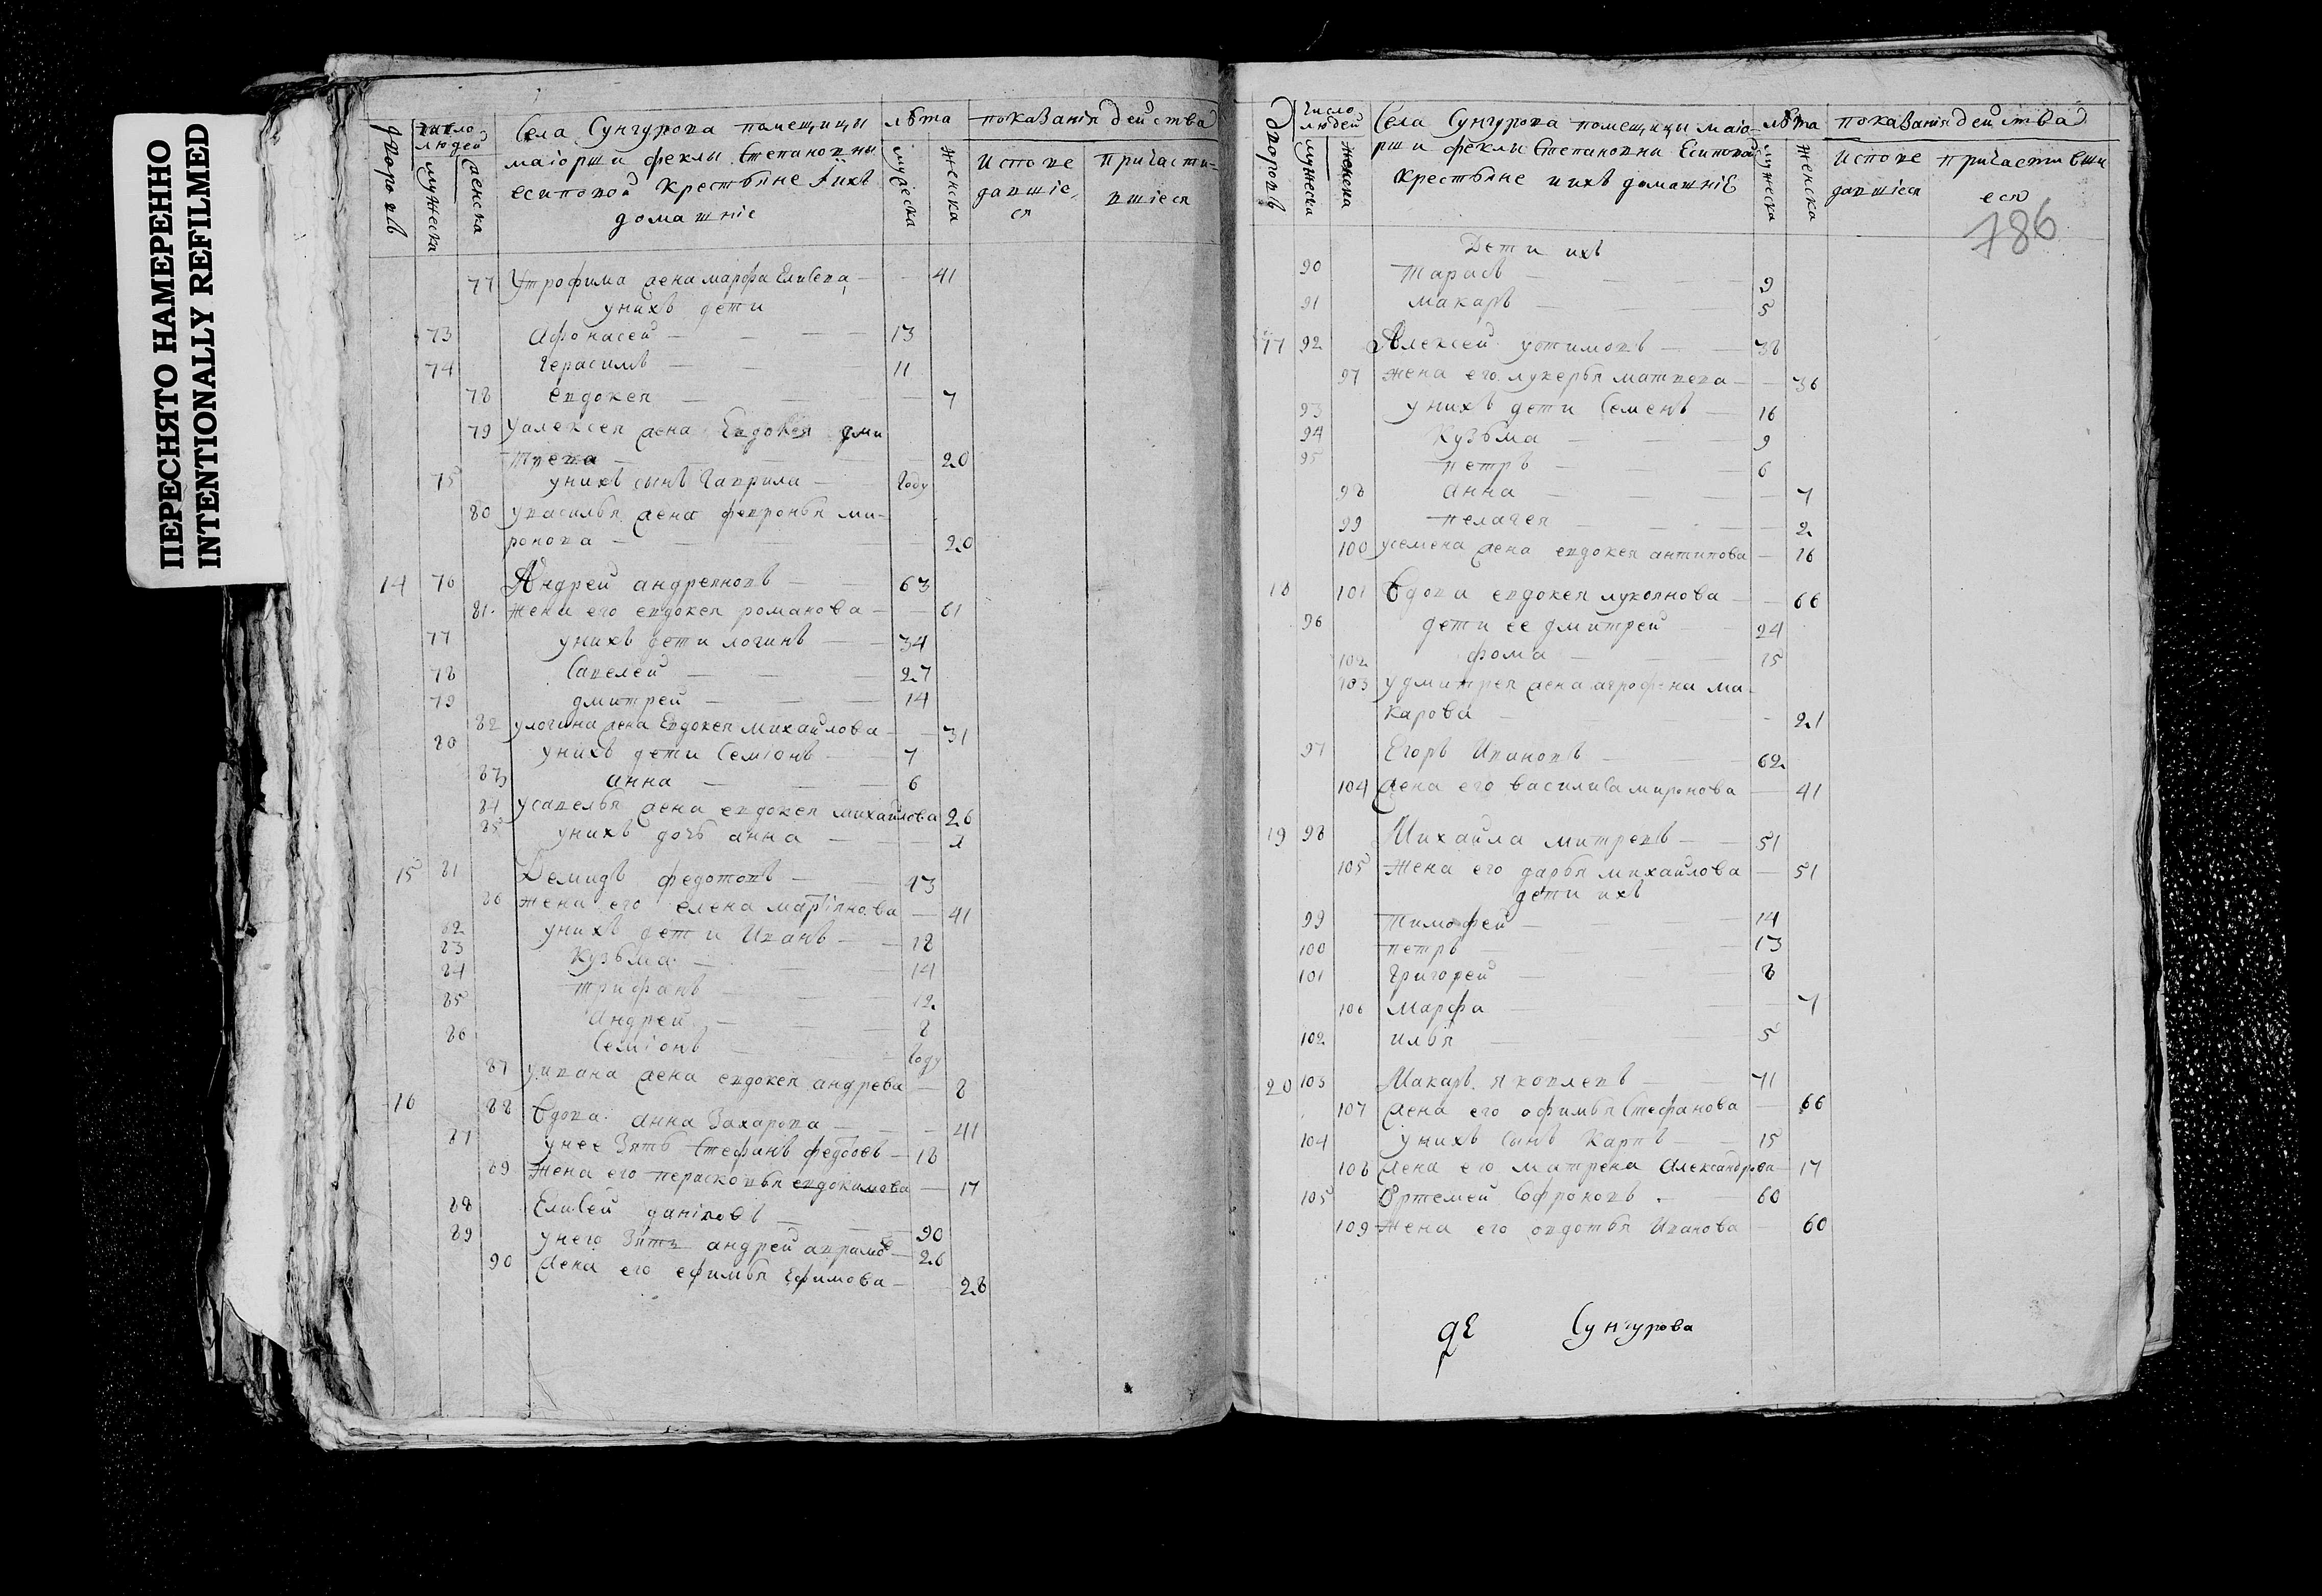 ПЕРЕСНЯТО НАМЕРЕННО
INTENTIONALLY REFILMED
дворовъ
число людей
мужеска
женска
Села Сунгурова помещицы
маіорши феклы Степановны
есиповой крестьяне и ихъ
домашніе
лѣта
мужеска
женска
показанія действа
испове
давшіе
ся
причасти-
вшіеся
77 Утрофима жена марфа Елисева 41
унихъ дети
73 Афонасей 13
74 Герасимъ 11
78 Евдокея 7
79 Уалексея жена Евдокея дми
трева 20
75 унихъ сынъ Гаврила году
80 увасилья жена февронья ми-
ронова 20
14 76 Андрей андреяновъ 63
81 жена его евдокея романова 61
77 унихъ дети логинъ 34
78 Савелей 27
79 дмитрей 14
82 улогина жена Евдокея михайлова 31
80 унихъ дети Семіонъ 7
83 анна 6
84 усавелья жена евдокея михайлова 26
85 унихъ дочь анна 1
15 81 Демидъ федотовъ 43
86 жена его елена мартіянова 41
82 унихъ дети Иванъ 18
83 Кузьма 14
84 трифанъ 12
85 Андрей 8
86 Семіонъ году
87 уивана жена евдокея андрева
16 88 Вдова анна Захарова 41
87 унее зять Стефанъ федосовъ 18
89 жена его парасковья евдокимова 17
88 Елисей даниловъ 90
89 унего зять андрей аврамовъ 26
90 жена его ефимья Ефимова 28
дворовъ
Число людей
мужеска
женска
Села Сунгурова помещицы маіо-
рши феклы Степановны Есиповой
крестьяне иихъ домашніе
лѣта
мужеска
женска
показанія действа
испове
давшіеся
причастивши
еся
786
Дети ихъ
90 Тарасъ 9
91 макаръ 5
17 92 Алексей устимовъ 38
97 жена его лукерья матвева 36
93 унихъ дети Семенъ 16
94 Кузьма 9
95 петръ 6
98 Анна 7
99 пелагея 2
100 усемена жена евдокея антипова 16
18 101 Вдова евдокея лукоянова 66
96 дети ее дмитрей 24
102 фома 15
103 удмитрея жена агрофена ма-
карова 21
97 Егоръ Ивановъ 62
104 жена его василиса миронова 41
19 98 Михайла митревъ 51
105 жена его дарья михайлова 51
дети ихъ
99 Тимофей 14
100 петръ 13
101 Григорей 8
106 марфа 7
102 илья 5
20 103 Макаръ яковлевъ 71
107 жена его офимья Стефанова 66
104 унихъ сынъ Карпъ 15
108 жена его матрена Александрова 17
105 Артемей Софроновъ 60
109 жена его овдотья Иванова 60
Сунгурова